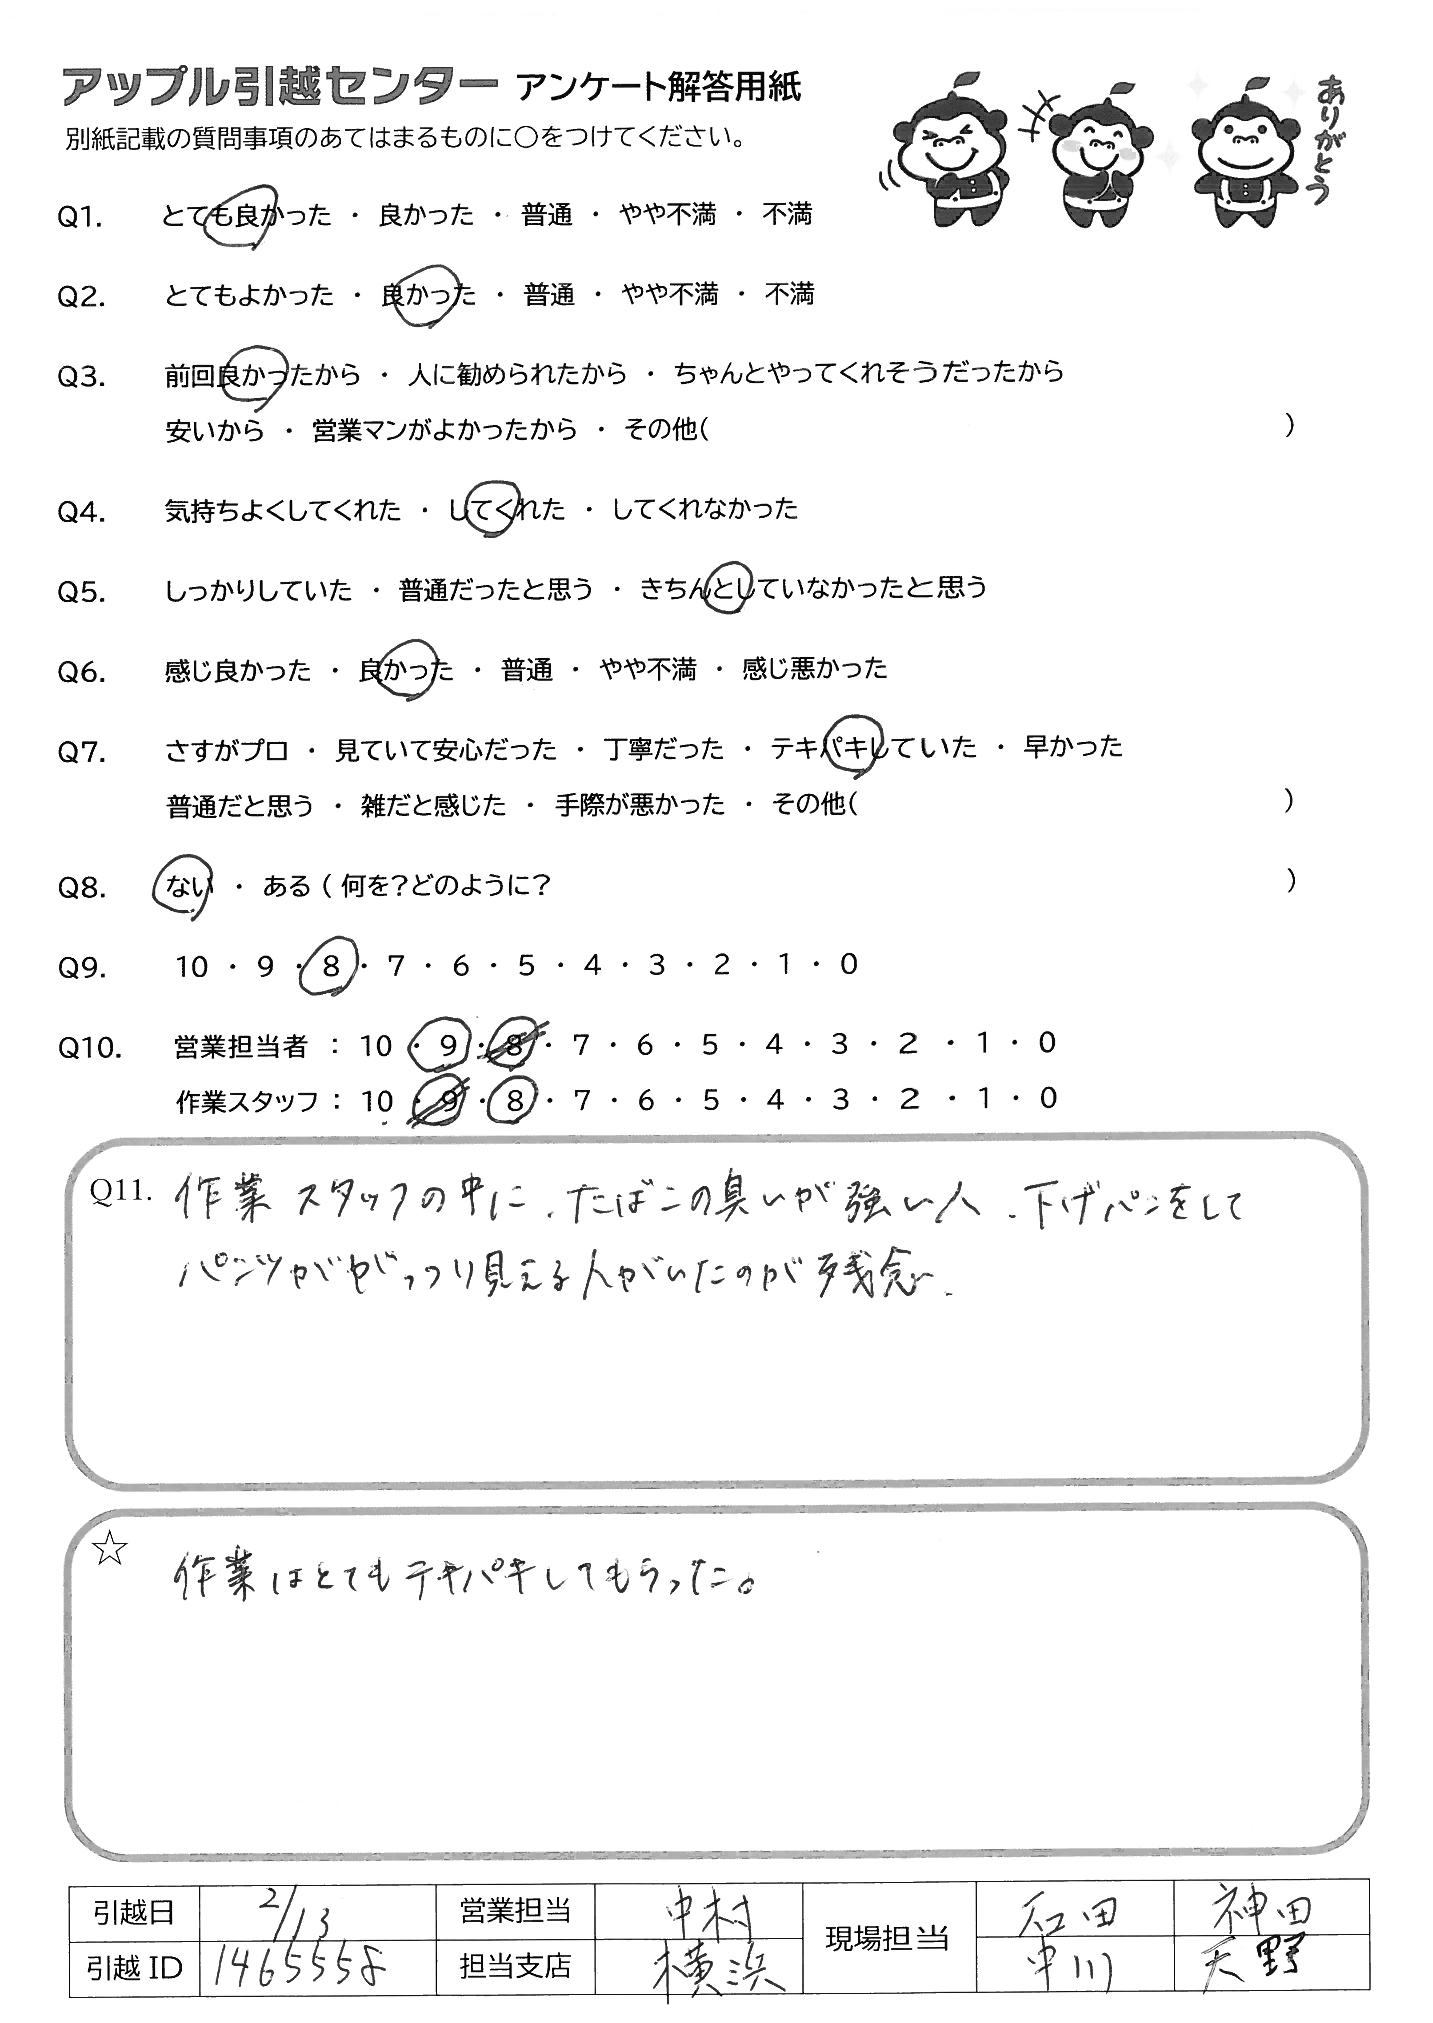 アップル引越センター アンケート解答用紙
別紙記載の質問事項のあてはまるものに〇をつけてください。
ありがとう
Q1. とても良かった ・ 良かった ・ 普通 ・ やや不満 ・ 不満
Q2. とてもよかった ・ 良かった ・ 普通 ・ やや不満 ・ 不満
Q3. 前回良かったから ・ 人に勧められたから ・ ちゃんとやってくれそうだったから
安いから ・ 営業マンがよかったから ・ その他( )
Q4. 気持ちよくしてくれた ・ してくれた ・ してくれなかった
Q5. しっかりしていた ・ 普通だったと思う ・ きちんとしていなかったと思う
Q6. 感じ良かった ・ 良かった ・ 普通 ・ やや不満 ・ 感じ悪かった
Q7. さすがプロ ・ 見ていて安心だった ・ 丁寧だった ・ テキパキしていた ・ 早かった
普通だと思う ・ 雑だと感じた ・ 手際が悪かった ・ その他( )
Q8. ない ・ ある ( 何を?どのように? )
Q9. 10 ・ 9 ・ 8 ・ 7 ・ 6 ・ 5 ・ 4 ・ 3 ・ 2 ・ 1 ・ 0
Q10. 営業担当者 : 10 ・ 9 ・ 8 ・ 7 ・ 6 ・ 5 ・ 4 ・ 3 ・ 2 ・ 1 ・ 0
作業スタッフ : 10 ・ 9 ・ 8 ・ 7 ・ 6 ・ 5 ・ 4 ・ 3 ・ 2 ・ 1 ・ 0
Q11. 作業スタッフの中に、たばこの臭いが強い人、下げパンをして
パンツががっつり見える人がいたのが残念、
☆ 作業はとてもテキパキしてもらった。
引越日 2/13 営業担当 中村 現場担当 石田 神田
引越 ID 1465558 担当支店 横浜 中川 天野